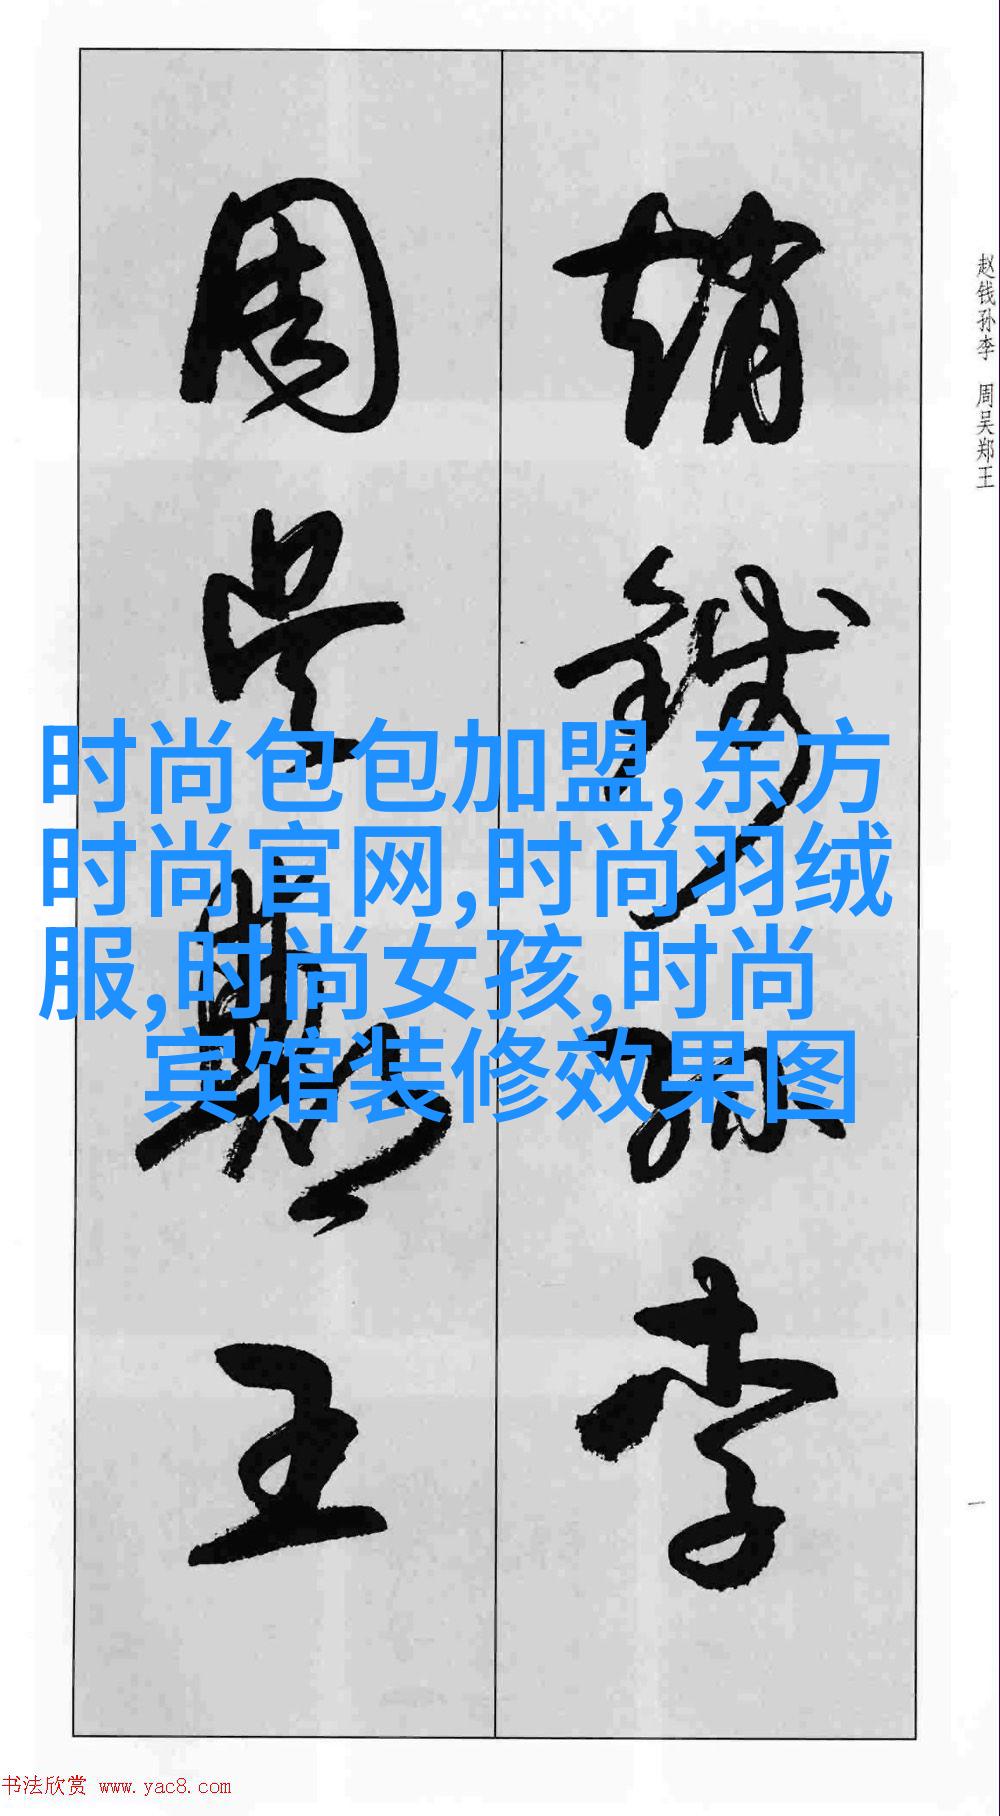 赵钱孙李
周吴郑王
赵钱孙李 周吴郑王
时尚包包加盟,东方
时尚官网,时尚羽绒
服,时尚女孩,时尚
宾馆装修效果图
一
书法欣赏 www.yac8.com